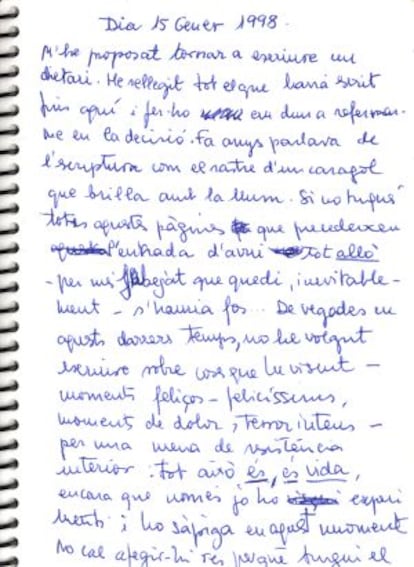 Dia 15 Gener 1998.
M'he proposat tornar a escriure un
dietari. He rellegit tot el que havia escrit
fins aquí i fer-ho em duu a refermar-
me en la decisió. Fa anys parlava de
l'escriptura com el rastre d'un caragol
que brilla amb la llum. Si no tingués
totes aquestes pàgines que precedeixen
l'entrada d'avui tot allò
- per més que quedi, inevitable-
ment - s'hauria fos... De vegades en
aquests darrers temps, no he volgut
escriure sobre coses que he viscut -
moments feliços - felicíssims,
moments de dolor, terror intens -
per una mena de resistència
interior: tot això és, és vida,
encara que només jo ho experi
menti i ho sàpiga en aquest moment
No cal afegir-hi res perquè tingui el